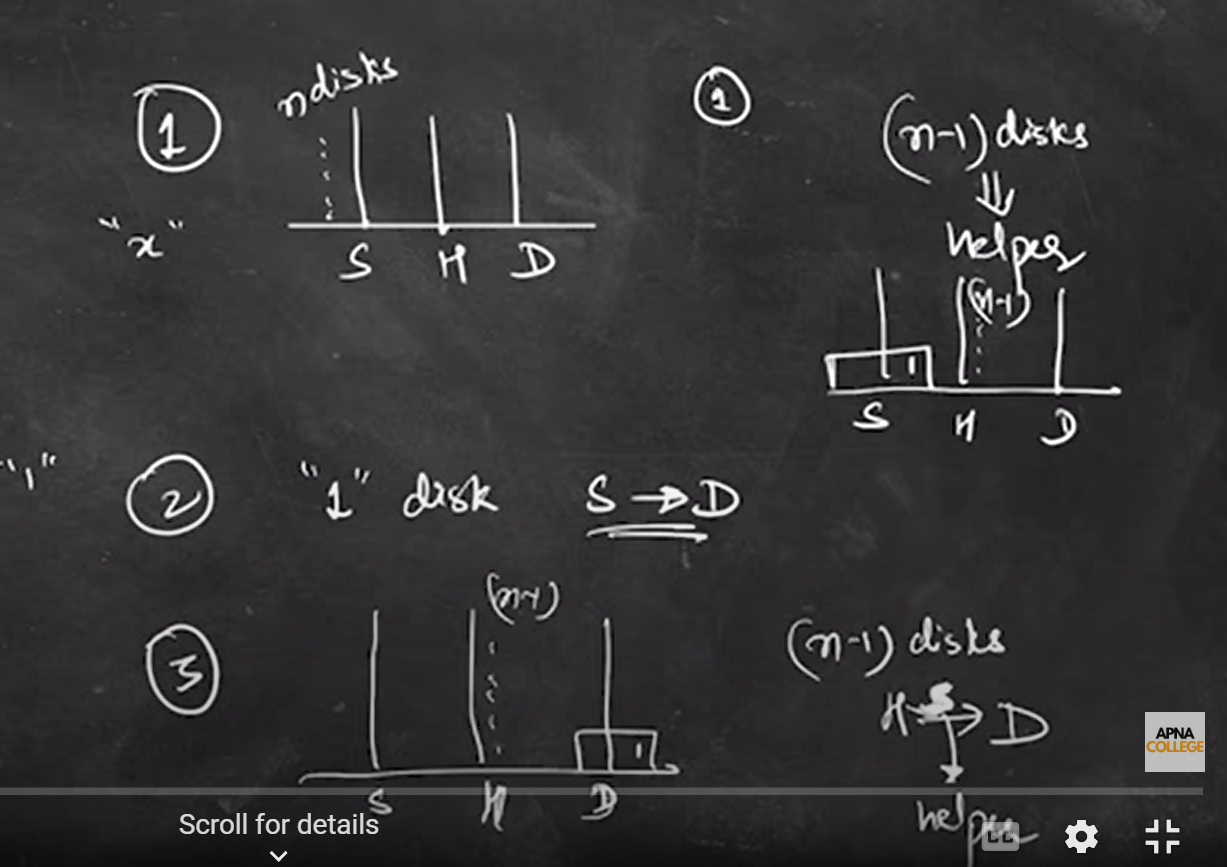 1
n disks
"x"
S H D
1
(n-1) disks
helper
(n-1)
1
S H D
2
"1" disk S → D
"1"
3
(n-1)
1
S H D
(n-1) disks
H S → D
helper
APNA
COLLEGE
Scroll for details
CC